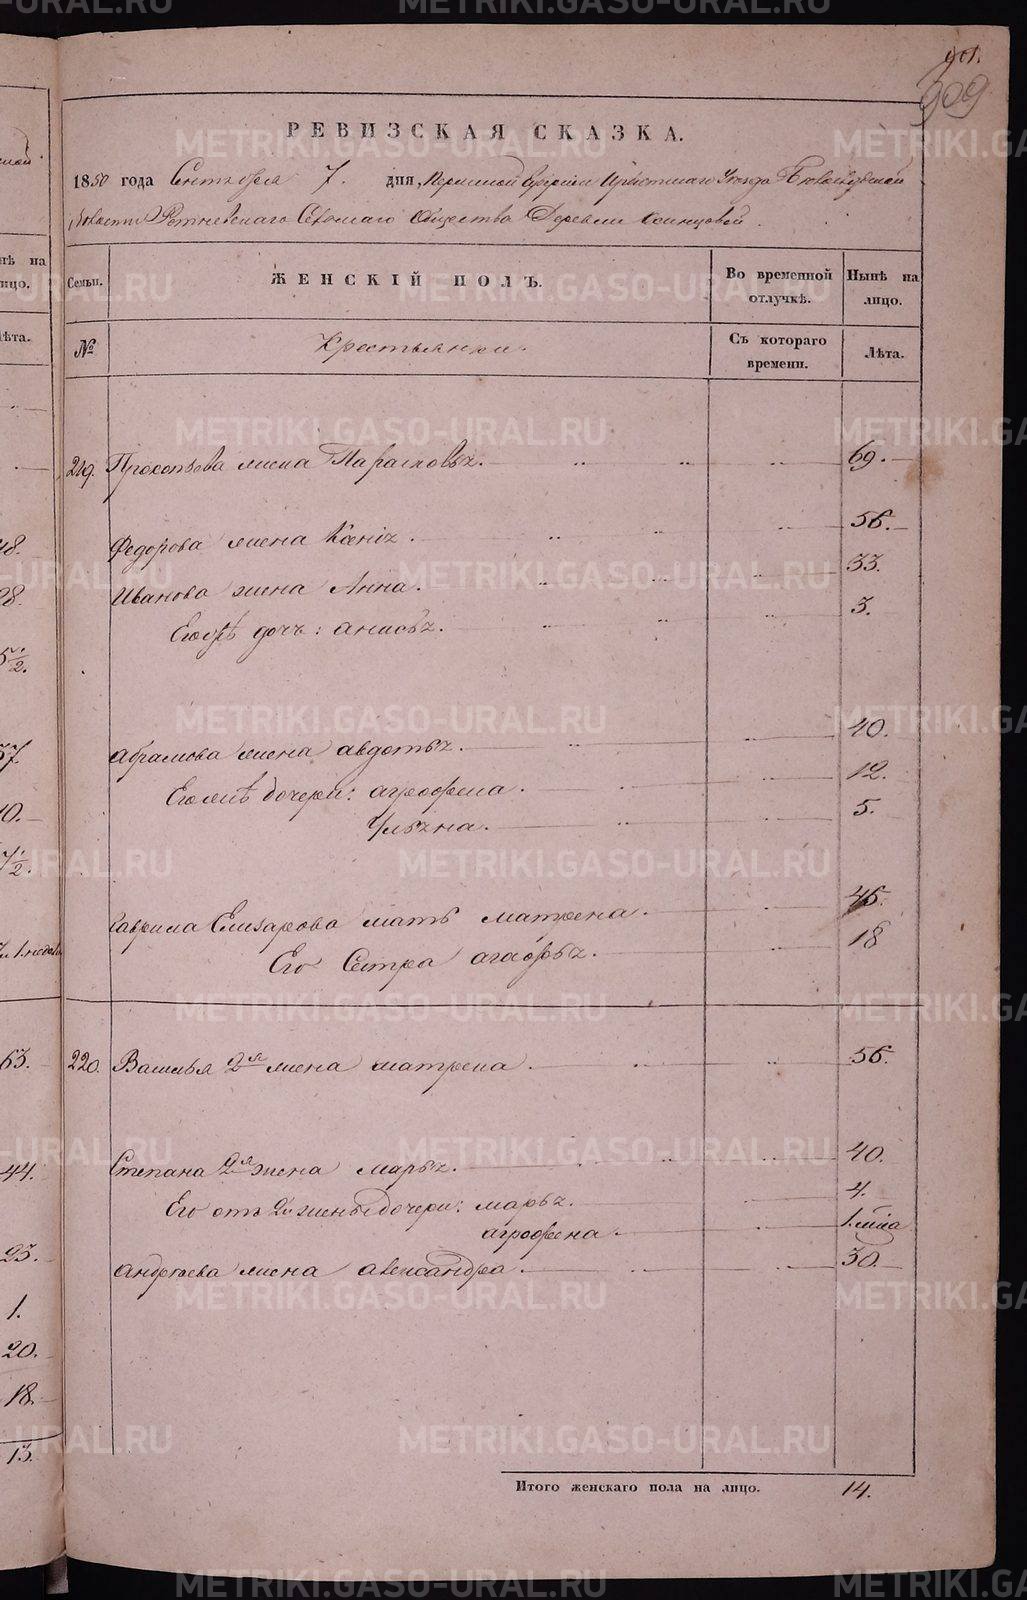 901.
909
РЕВИЗСКАЯ СКАЗКА.
1850 года Сентября 7. дня, Пермской Губернии Ирбитскаго Уезда
Волости Сельскаго Общества Деревни
Семьи. ЖЕНСКІЙ ПОЛЪ. Во временной отлучкѣ. Нынѣ на лицо.
№ Крестьянки. Съ котораго времени. Лѣта.
219. Прокопьева жена Парасковья. 69.
Федорова жена Ксенія. 56.
Иванова жена Анна. 33.
дочь: Анисья. 3.
Абрамова жена Авдотья. 40.
дочери: Агрофена. 12.
Ульяна. 5.
Гаврила Елизарова мать Матрена. 45.
Его Сестра Агафья. 18
220. Василья 2я жена Матрена. 56.
Степана 2я жена Марья. 40.
Его отъ 2й жены дочери: Марья. 4.
Агрофена. 1.
Андреева жена Александра. 30.
Итого женскаго пола на лицо. 14.
48.
28.
5½.
57.
10.
7½.
63.
44.
23.
1.
20.
18.
13.
METRIKI.GASO-URAL.RU